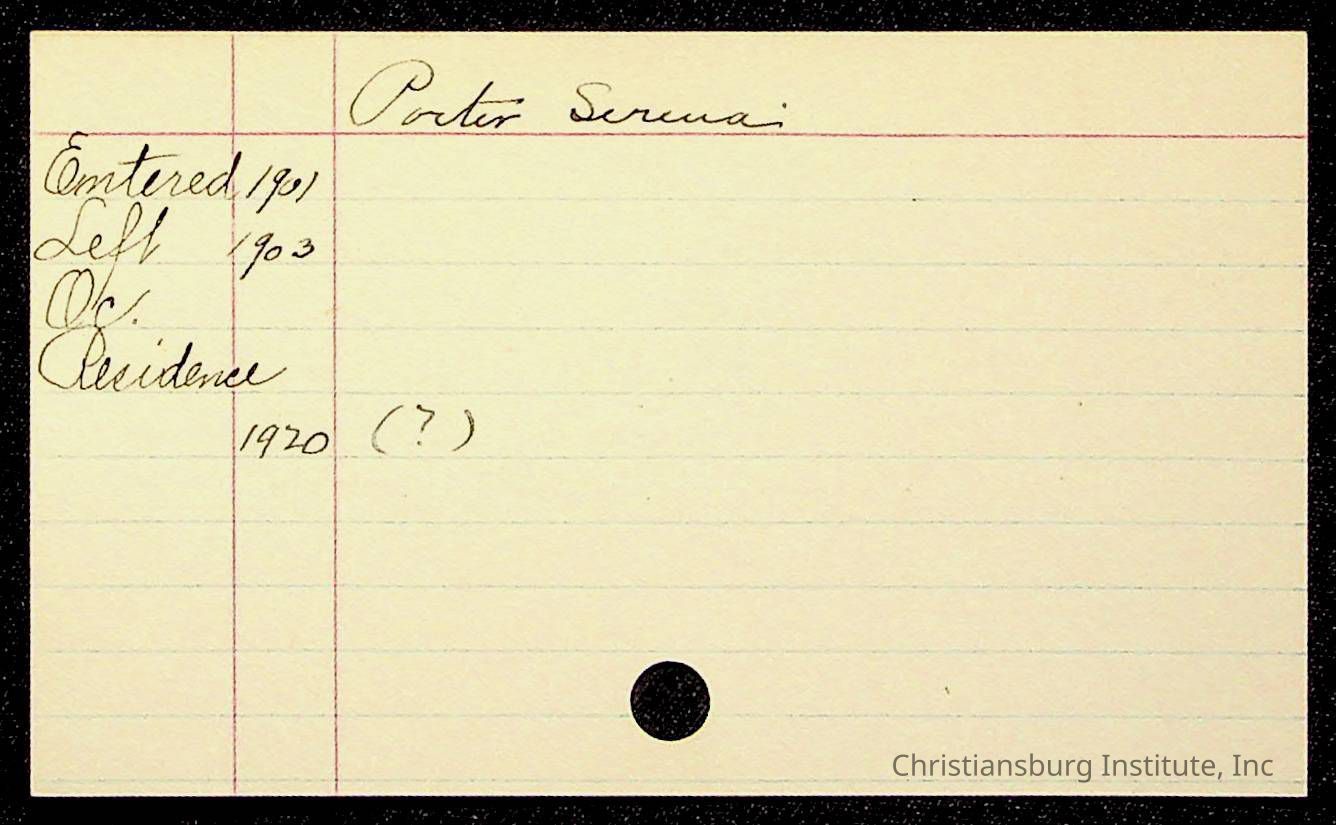 Porter Serena
Entered 1901
Left 1903
Oc.
Residence
1920 (?)
Christiansburg Institute, Inc